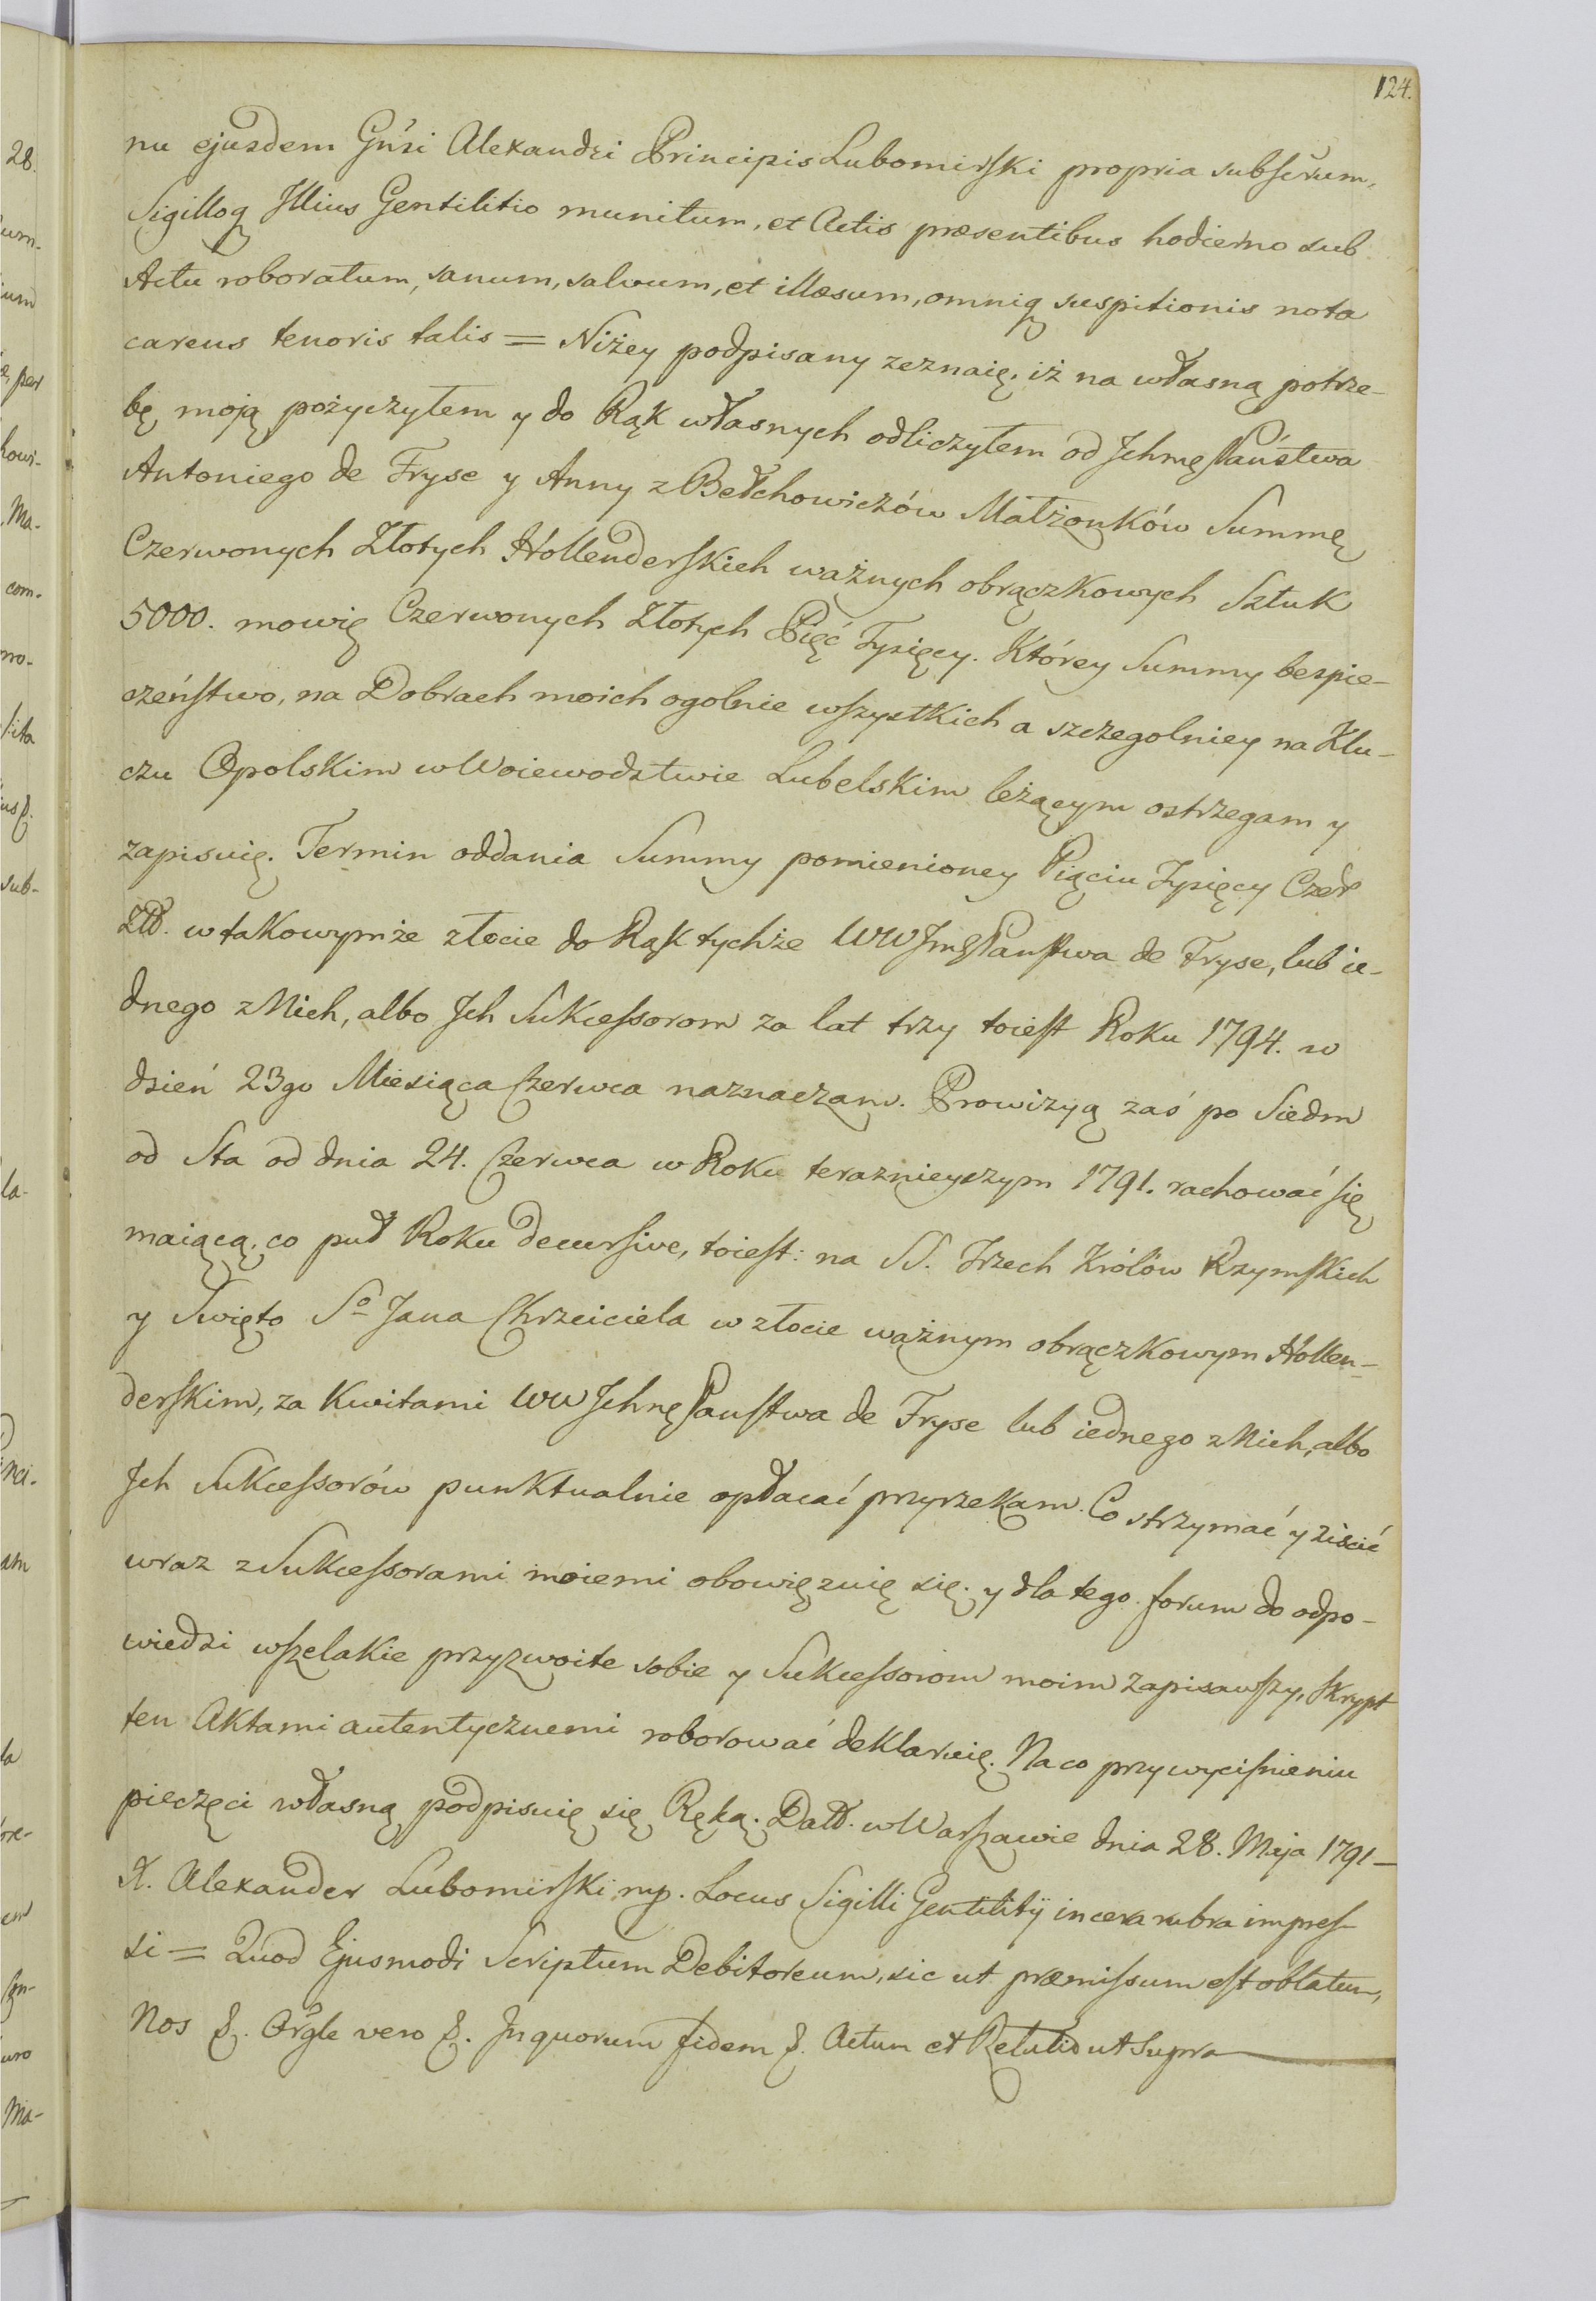 124.
nu ejusdem Gnŕi Alexandri Principis Lubomirski propria subscŕum,
Sigilloq Illius Gentilitio munitum, et Actis præsentibus hodierno sub
Actu roboratum, sanum, salvum, et illæsum, omniq suspitionis nota
carens tenoris talis = Niżey podpisany zeznaię, iż na własną potrze-
bę moją pożyczyłem y do Rąk własnych odliczyłem od Jchmę Państwa
Antoniego de Fryse y Anny z Bełchowiczów Małżonków Summę
Czerwonych Złotych Hollenderskich ważnych obrączkowych Sztuk
5000. mowię Czerwonych Złotych Pięć Tysięcy. Którey Summy bespie-
czeństwo, na Dobrach moich ogolnie wszystkich a szczegolniey na Klu-
czu Opolskim w Woiewodztwie Lubelskim leżącym ostrzegam y
zapisuię. Termin oddania Summy pomienioney Pięciu Tysięcy Czer
Zł. w takowymże złocie do Rąk tychże WW Jmę Panstwa de Fryse, lub ie-
dnego z Nich, albo Jch Sukcessorom za lat trzy toiest Roku 1794. w
dzień 23go Miesiąca Czerwca naznaczam. Prowizyą zaś po Siedm
od Sta od dnia 24. Czerwca w Roku teraznieyszym 1791. rachować się
maiącą, co puł Roku decursive, toiest: na SS. Trzech Królów Rzymskich
y Swięto So Jana Chrzciciela w złocie ważnym obrączkowym Hollen-
derskim, za Kwitami WW Jchmę Panstwa de Fryse lub iednego z Nich, albo
Jch Sukcessorów punktualnie opłacać przyrzekam. Co strzymać y ziścić
wraz z Sukcessorami moiemi obowięzuię się, y dla tego forum do odpo-
wiedzi wszelakie przyzwoite sobie y Sukcessorom moim zapisawszy, Skrypt
ten Aktami autentycznemi roborować deklaruię. Na co przy wycisnieniu
pieczęci własną podpisuię się Ręką. Datt. w Warszawie dnia 28. Maja 1791 –
X. Alexander Lubomirski mp. Locus Sigilli Gentilitij in cera rubra impres-
si = Quod Ejusmodi Scriptum Debitoreum, sic ut præmissum est oblatum,
Nos &. Orgle vero &. In quorum fidem &. Actum et Relatio ut Supra